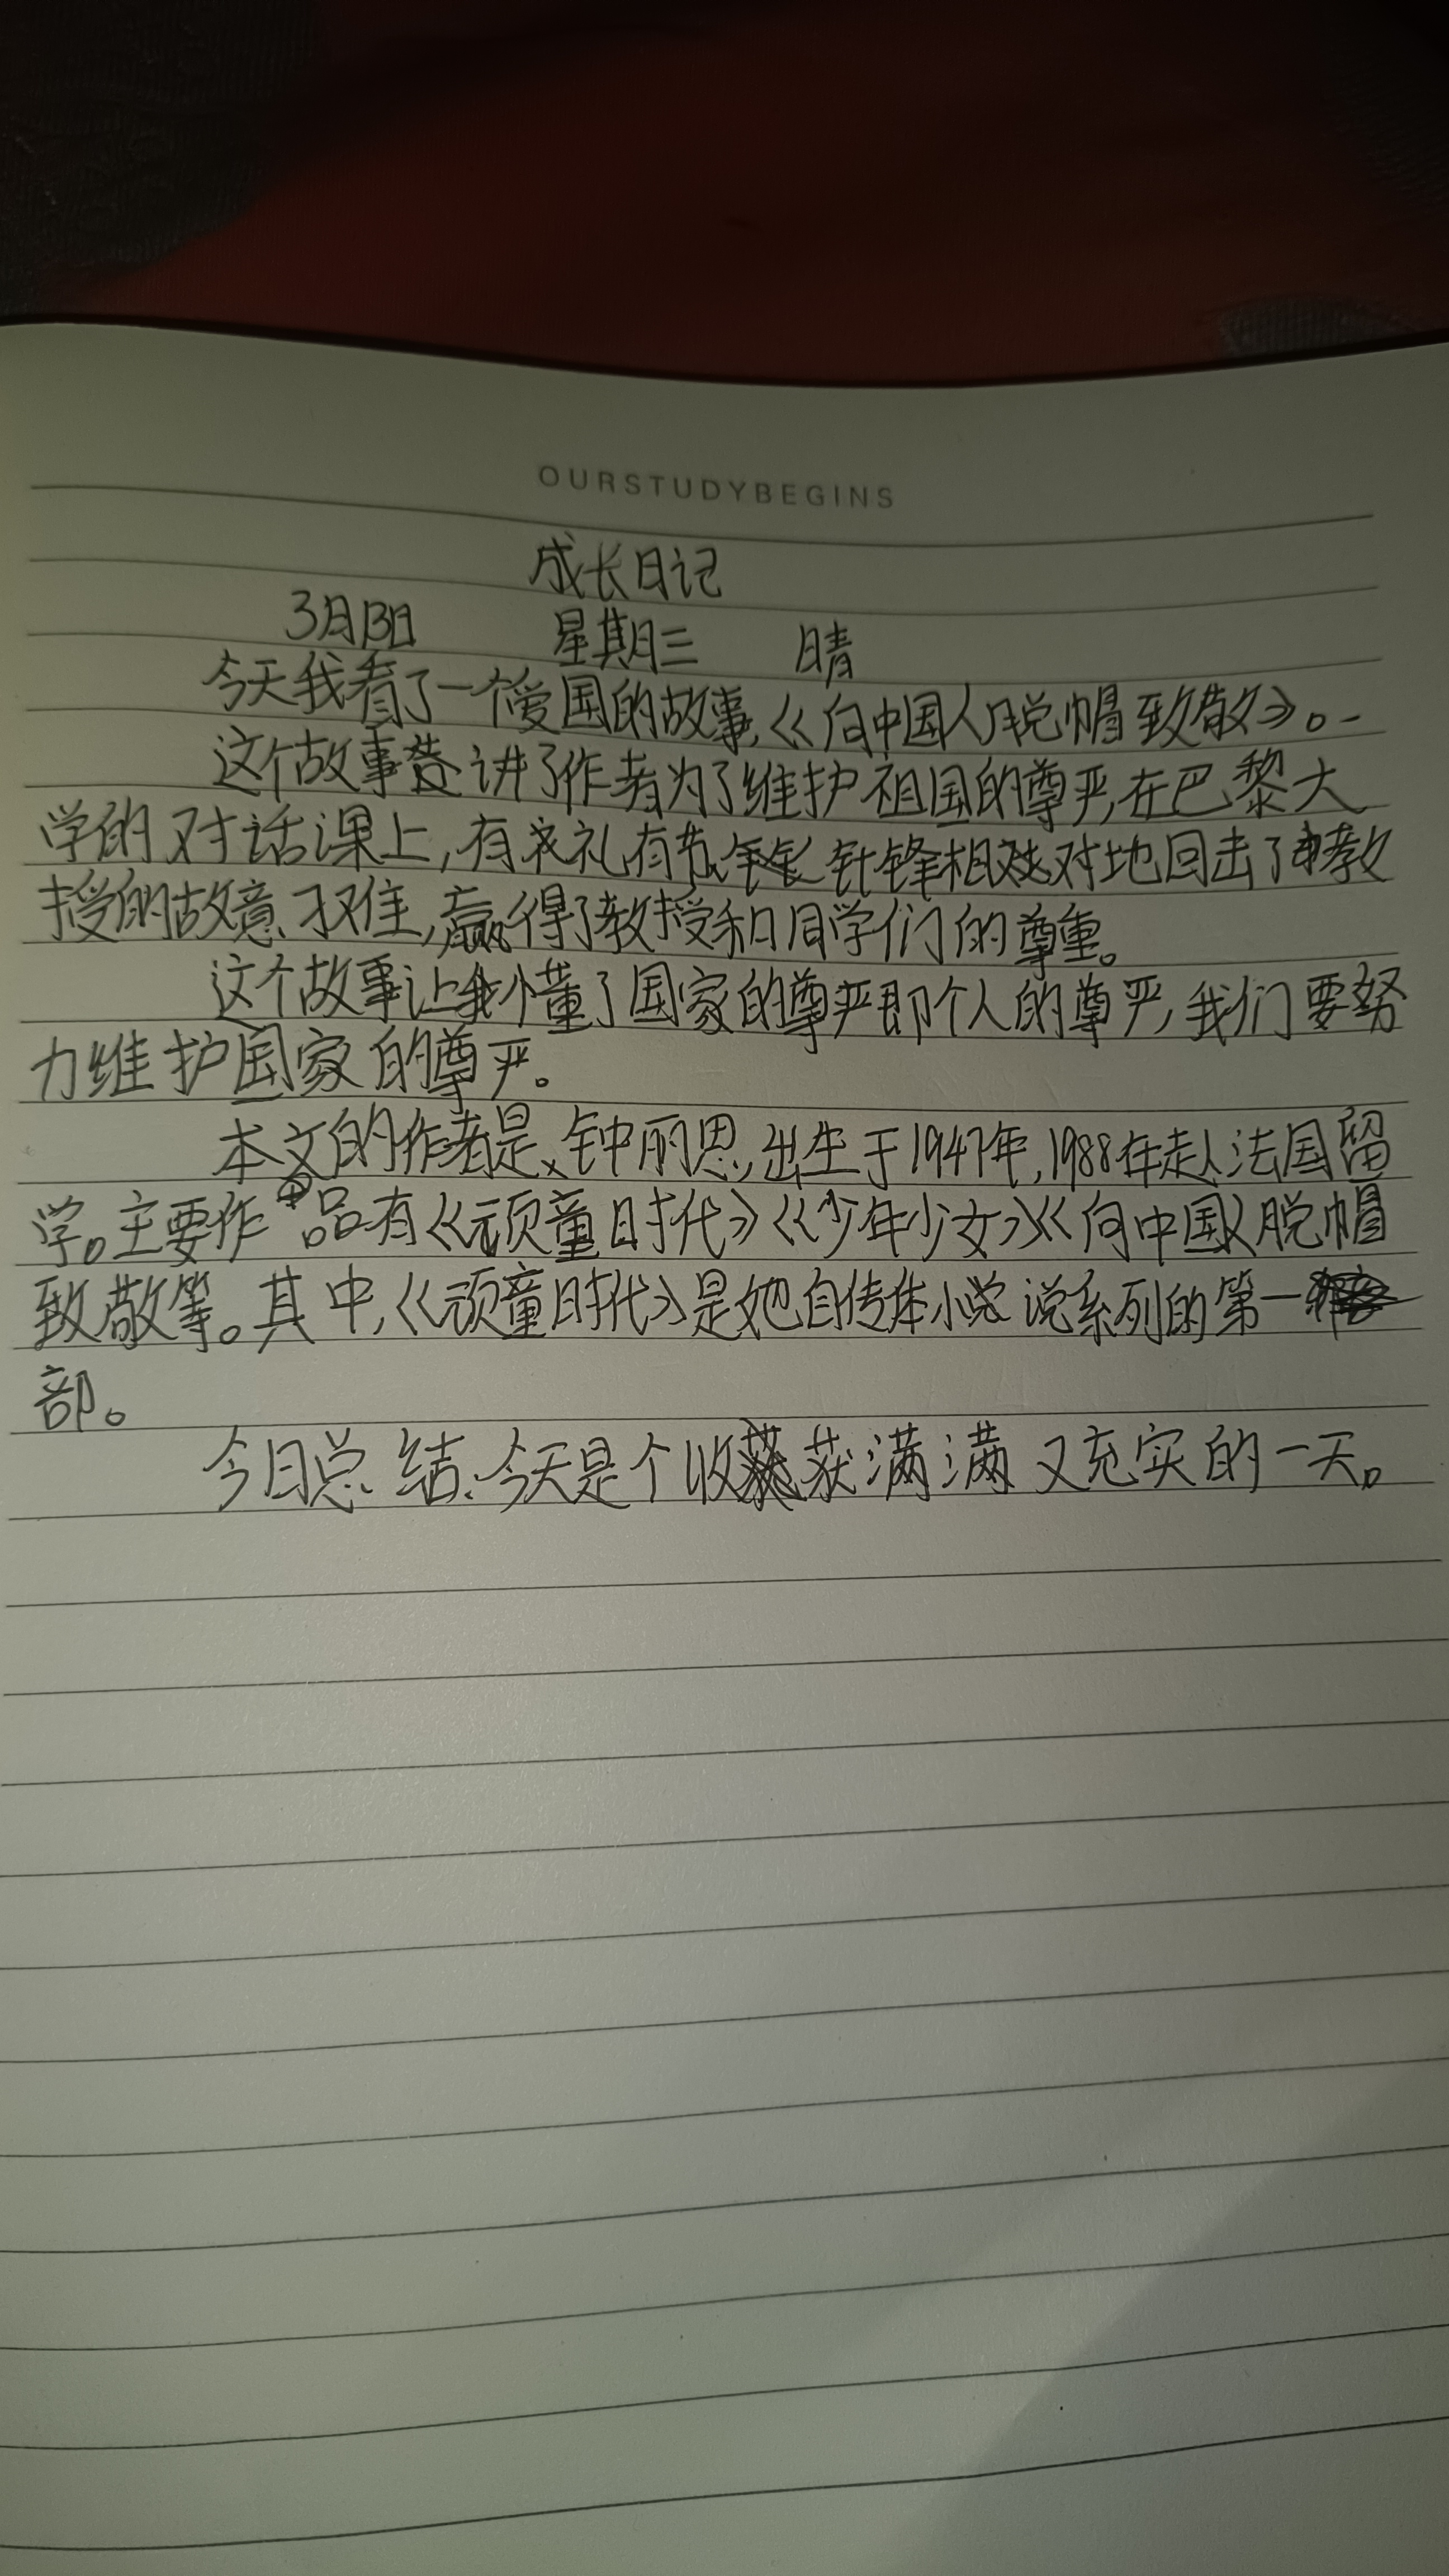 OURSTUDYBEGINS
成长日记
3月13日 星期三 晴
今天我看了一个爱国的故事,《向中国人脱帽致敬》。
这个故事讲了作者为了维护祖国的尊严,在巴黎大
学的对话课上,有礼有节、针锋相对地回击了教
授的故意刁难,赢得了教授和同学们的尊重。
这个故事让我懂了国家的尊严即个人的尊严,我们要努
力维护国家的尊严。
本文的作者是、钟丽思,出生于1947年,1988年赴法国留
学。主要作品有《顽童时代》《少年少女》《向中国人脱帽
致敬等。其中,《顽童时代》是她自传体小说系列的第一
部。
今日总结:今天是个收获满满又充实的一天。